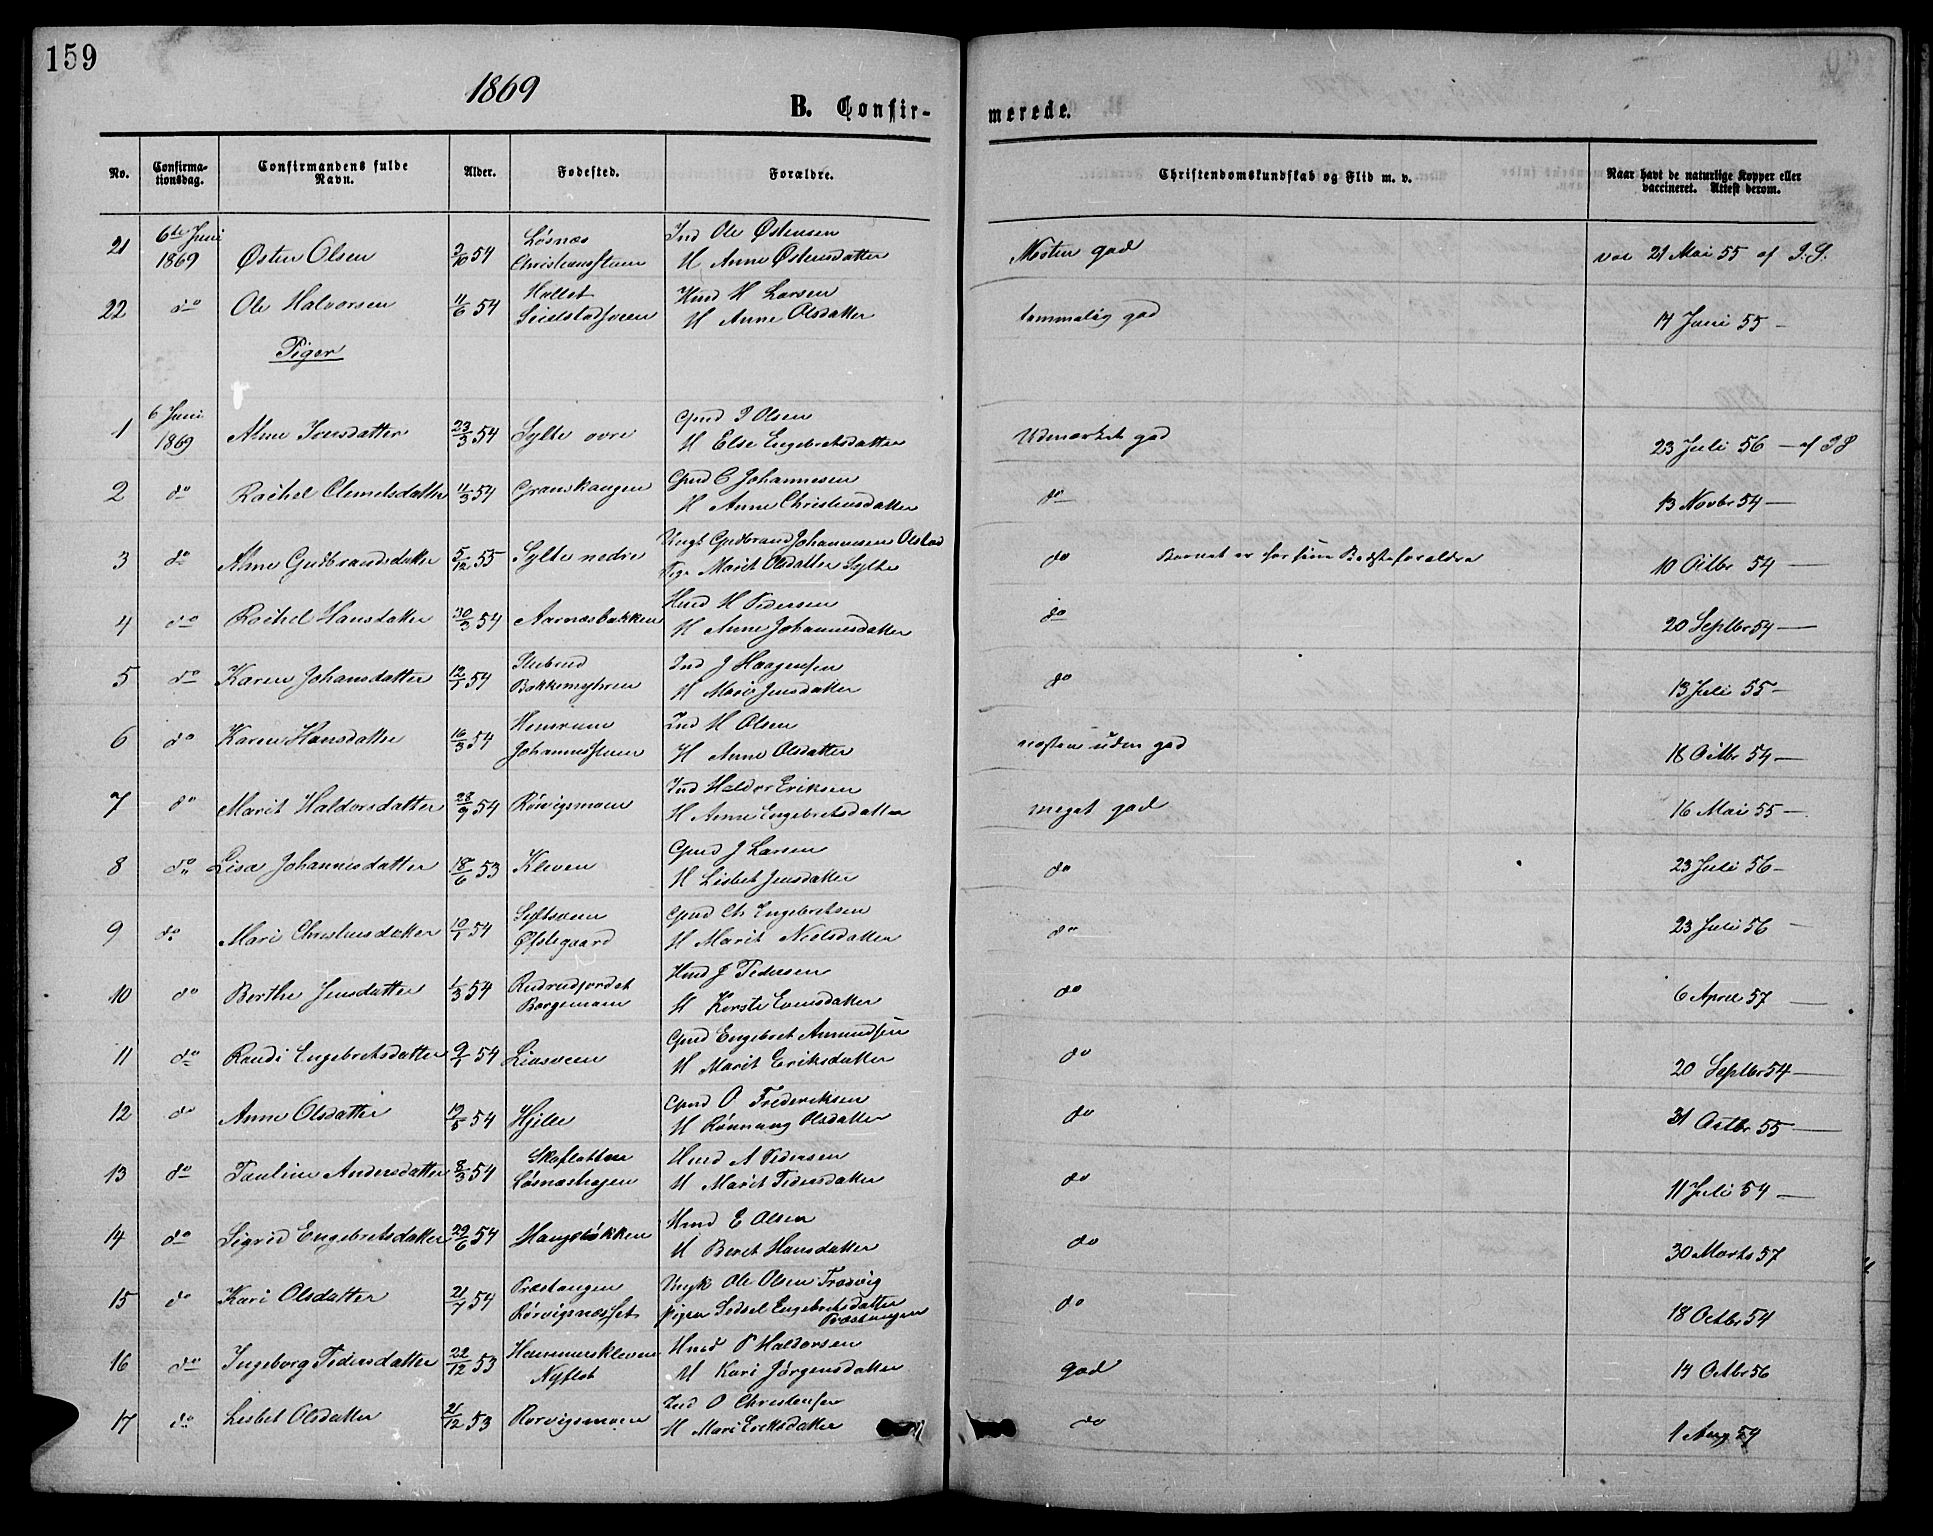 159
1869
B. Confir-
merede.
No.
Confirma-
tionsdag.
Confirmandens fulde
Navn.
Alder.
Fødested.
Forældre.
Christendomskundskab og Flid m. v.
Naar havt de naturlige Kopper eller
vaccineret. Attest derom.
21 6te Juni 1869 Østen Olsen 2/10 54 Løsnæs Ind Ole Østensen Næsten god vac 21 Mai 55 af
H Anne Østensdatter
22 do Ole Halvorsen 11/6 54 Hollet Hmd H Larsen temmelig god 14 Juni 55 -
H Anne Olsdatter
Piger
1 6 Juni 1869 Anne Iversdatter 23/3 54 Sylte øvre Gmd I Olsen Udmærket god 23 Juli 56 - af
H Else Engebretsdatter
2 do Rachel Clemetsdatter 11/3 54 Gmd C Johannesen do 13 Novbr 54 -
H Anne Christensdatter
3 do Anne Gudbrandsdatter 5/12 55 Sylte nedre Ungk Gudbrand Johannesen Olstad do Barnet er hos sine Bedsteforældre 10 Octbr 54 -
Pige Marit Olsdatter Sylte
4 do Rachel Hansdatter 30/3 54 Aarnæsbakken Hmd H Pedersen do 20 Septbr 54 -
H Anne Johannesdatter
5 do Karen Johansdatter 12/7 54 Stubrud Ind J Haagensen do 13 Juli 55 -
Bakkemyhren H Mari Jensdatter
6 do Karen Hansdatter 16/3 54 Ind H Olsen næsten uden god 18 Octbr 54 -
H Anne Olsdatter
7 do Marit Haldorsdatter 28/9 54 Rørvigsmoen Ind Haldor Eriksen meget god 16 Mai 55 -
H Anne Engebretsdatter
8 do Lisa Johannesdatter 18/6 53 Kleven Gmd J Larsen do 23 Juli 56 -
H Lisbet Jensdatter
9 do Mari Christensdatter 10/1 54 Gmd Ch Engebretsen do 23 Juli 56 -
Øfstegaard H Marit Nielsdatter
10 do Berthe Jensdatter 1/3 54 Rudrudjordet Hmd J Pedersen do 6 April 57 -
Borgemoen H Kersti Evensdatter
11 do Randi Engebretsdatter 9/1 54 Liasveen Gmd Engebret Amundsen do 20 Septbr 54 -
H Marit Eriksdatter
12 do Anne Olsdatter 19/5 54 Hjelle Gmd O Frederiksen do 31 Octbr 55 -
H Rønnaug Olsdatter
13 do Pauline Andersdatter 8/3 54 Skaflatten Hmd A Pedersen do 11 Juli 54 -
Løsnæshagen H Marit Pedersdatter
14 do Sigrid Engebretsdatter 22/6 54 Haugsbakken Hmd E Olsen do 30 Marts 57
H Beret Hansdatter
15 do Kari Olsdatter 21/7 54 Præstangen Ungk Ole Olsen Trosvig do 18 Octbr 54
Rørvigsnæsset pigen Sidsel Engebretsdatter
Præstangen
16 do Ingeborg Pedersdatter 22/12 53 Hammerskleven Hmd P Haldorsen god 14 Octbr 56
Nyflot H Kari Jørgensdatter
17 do Lisbet Olsdatter 21/12 53 Rørvigsmoen Ind O Christensen do 1 Aug 54
H Mari Eriksdatter